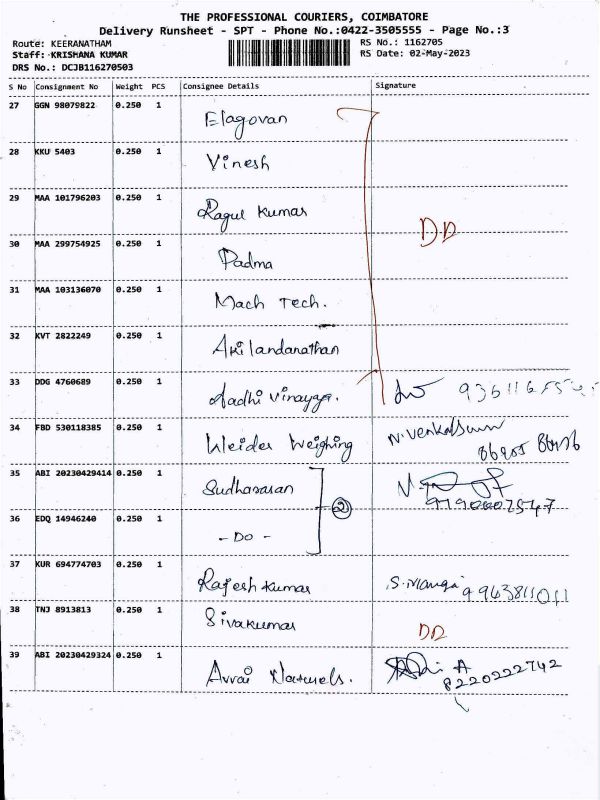 THE PROFESSIONAL COURIERS, COIMBATORE
Delivery Runsheet - SPT - Phone No.:0422-3505555 - Page No.:3
Route: KEERANATHAM RS No.: 1162705
Staff: KRISHANA KUMAR RS Date: 02-May-2023
DRS No.: DCJB116270503
S No Consignment No Weight PCS Consignee Details Signature
27 GGN 98079822 0.250 1 Elagovan
28 KKU 5403 0.250 1 Vinesh
29 MAA 101796203 0.250 1 Ragul Kumar
30 MAA 299754925 0.250 1 Padma
DD
31 MAA 103136070 0.250 1 Mach Tech.
32 KVT 2822249 0.250 1 Akilandanathan
33 DDG 4760689 0.250 1 Aadhi Vinayga.
34 FBD 530118385 0.250 1 Weider Weighing N.Venkatsuwn
35 ABI 20230429414 0.250 1 Sudharasan
2
36 EDQ 14946240 0.250 1 - DO -
37 KUR 694774703 0.250 1 Rajesh Kumar S.Manga 9943811011
38 TNJ 8913813 0.250 1 Sivakumar DD
39 ABI 20230429324 0.250 1 Avvai Naturels. A
8220222742